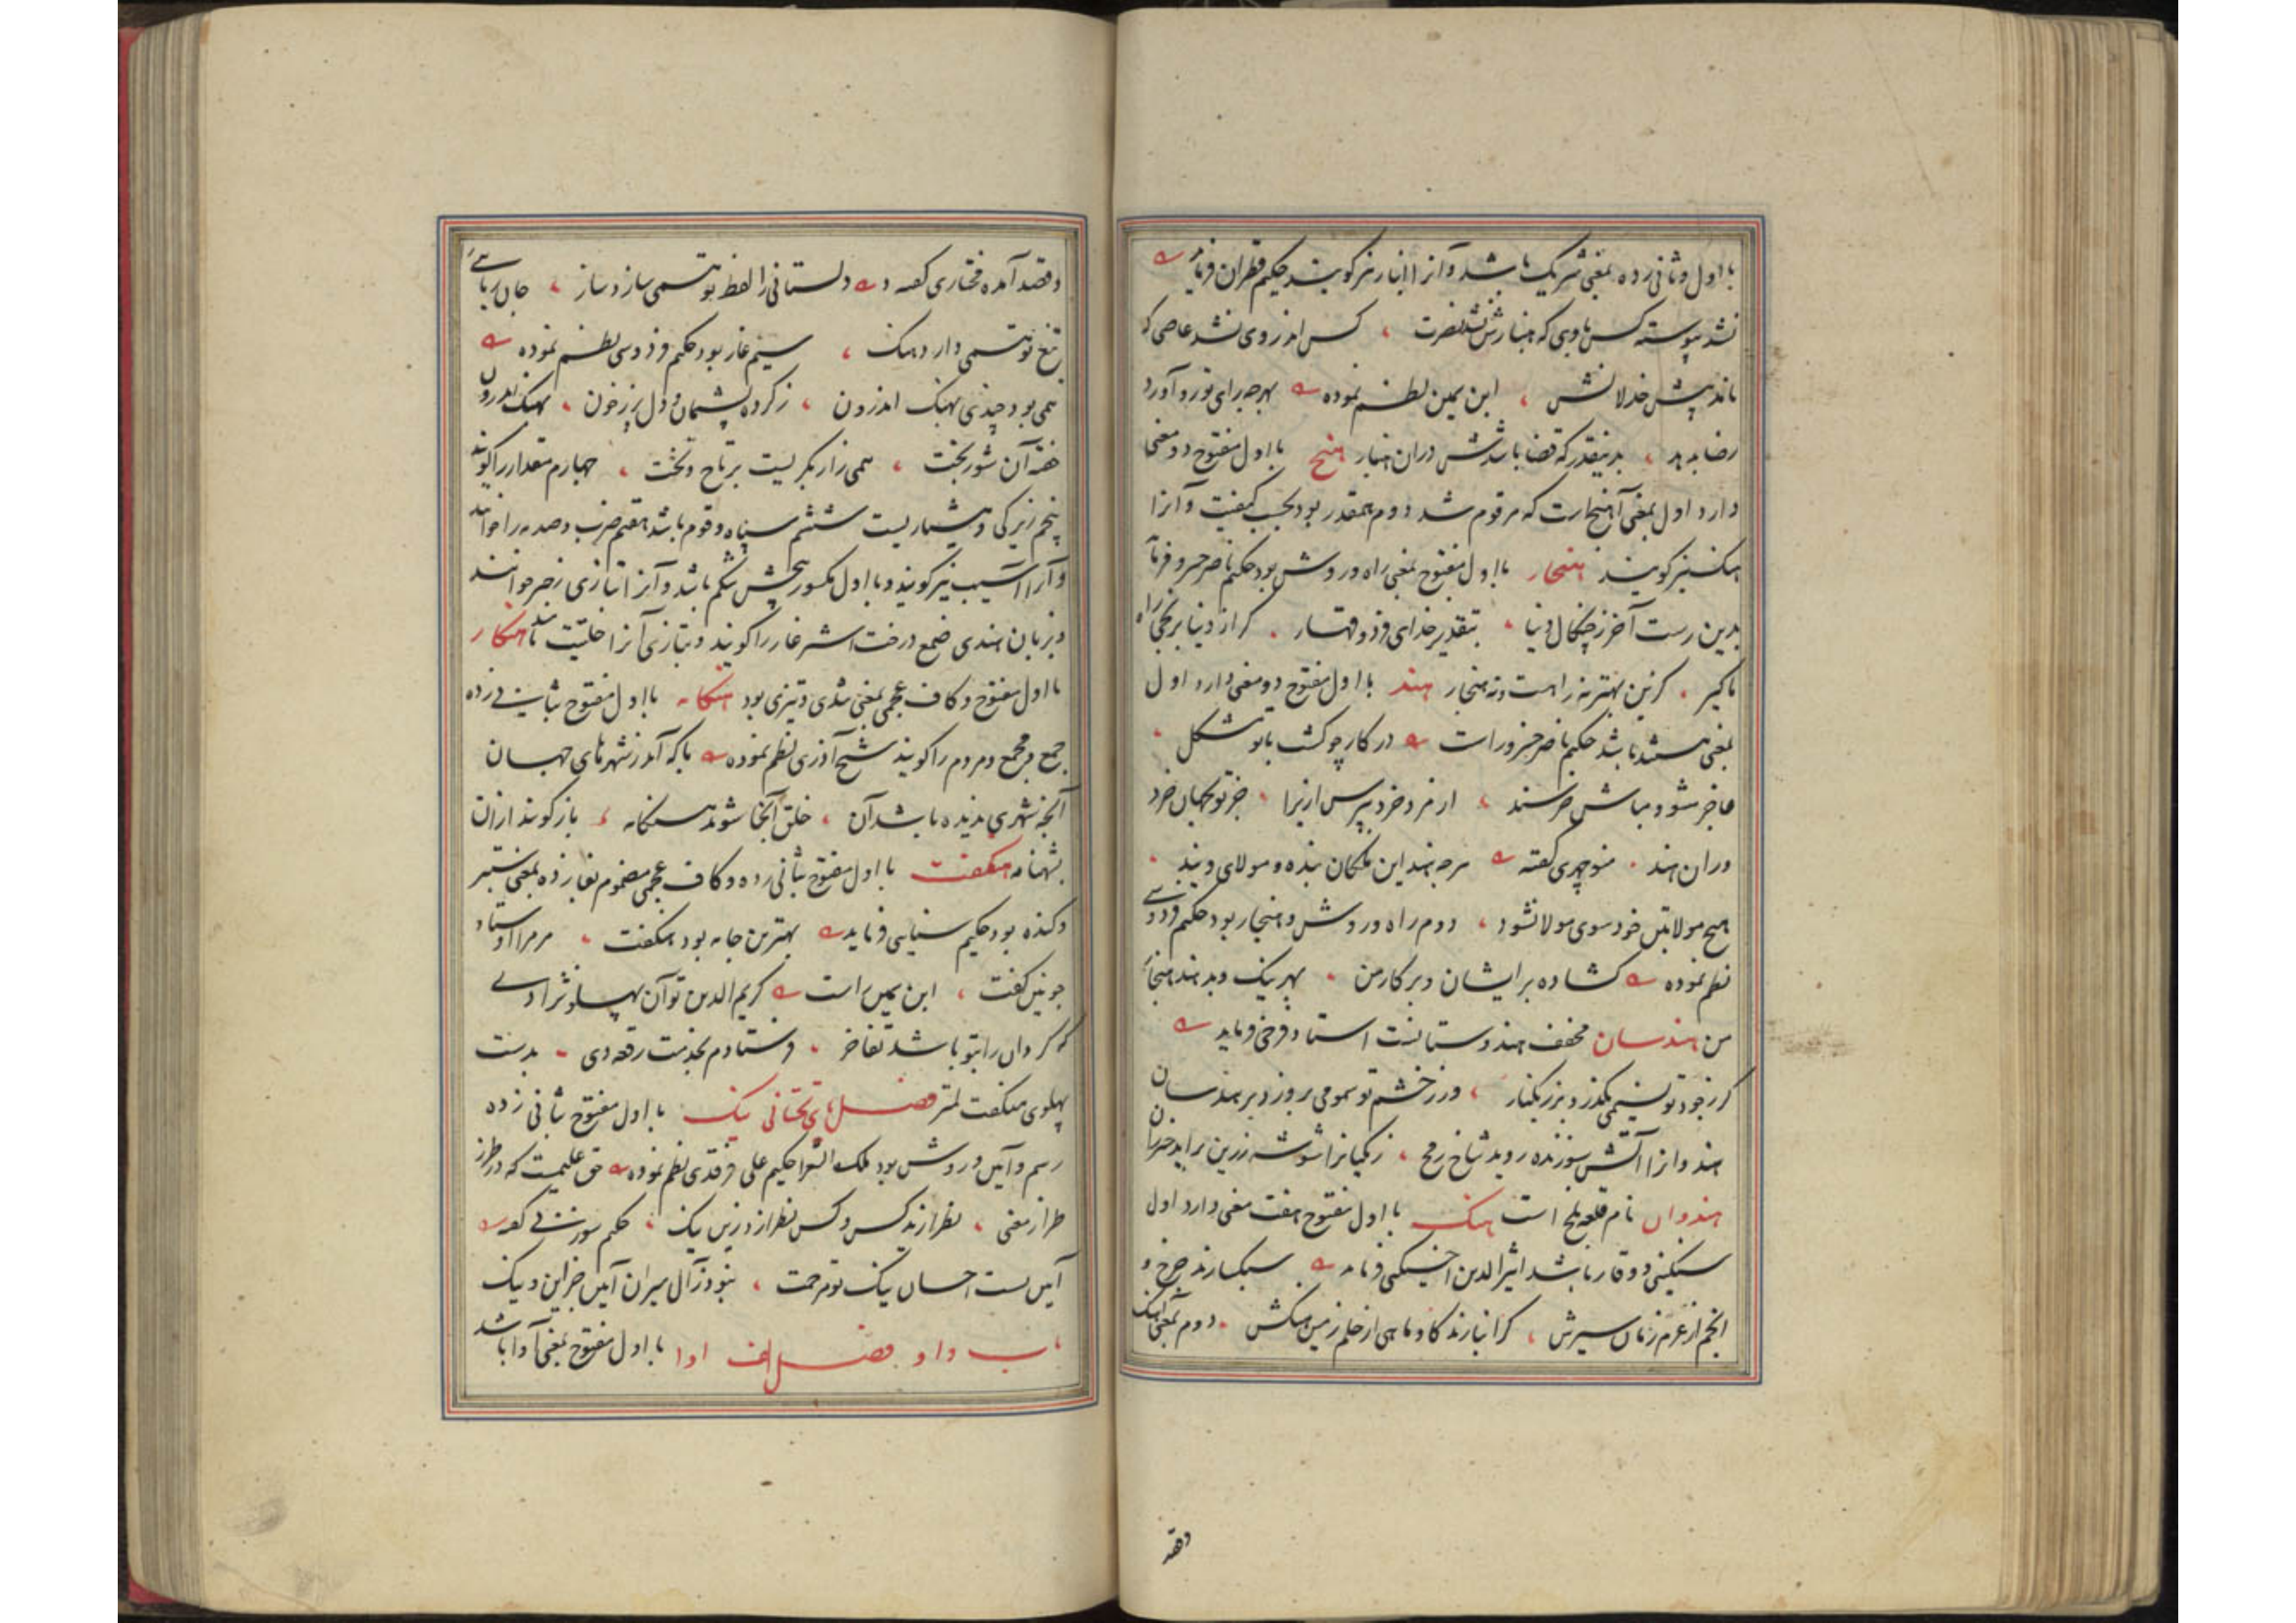 با اول و ثانی زده بمعنی شریک باشد و آنرا انباز نیز گویند حکیم قطران فرماید
نشد پیوسته کس باوی که هنبازش نشد نصرت کس اندر وی نشد عاصی که
ماند پیش خذلانش ابن یمین نظم نموده بهرچه برای تو رو آورد
رضا بده بدینقدر که قضا باشدش دران هنباز هنج با اول مفتوح دو معنی
دارد اول بمعنی آهنجارت که مرقوم شد دوم همقدر بود بحسب کیفیت و آنرا
هنگ نیز گویند هنجار با اول مفتوح بمعنی راه و روش بود حکیم ناصر خسرو فرماید
بدین رست آخر ز چنگال دنیا بتقدیر خدای فرد و قهار گر از دنیا برنجی راه
ما گیر کزین بهتر نه راهست و نه هنجار هند با اول مفتوح دو معنی دارد اول
بمعنی هستند باشد حکیم ناصر خسرو راست در کار چو گشت با تو مشکل
عاجز مشو و مباش خرسند از مرد خرد بپرس ازیرا جز تو بجهان خرد
وران هند منوچهری گفته هرچه هند این ملکان بنده و مولای ویند
هیچ مولا بتن خود سوی مولا نشود دوم راه و روش و هنجار بود حکیم فردوسی
نظم نموده گشاده بر ایشان و بر کار من بهر نیک و بد هند هنجار
من هندسان مخفف هندوستانست استاد فرخی فرماید
گر ز جود تو نسیمی بگذرد بر زنگبار ور ز خشم تو سمومی بر وزد بر هندسان
هندوانرا آتش سوزنده روید شاخ رمح زنگیانرا شوشه زرین برآید خیزران
هندوان نام قلعه بلخ است هنگ با اول مفتوح هفت معنی دارد اول
سنگینی و وقار باشد اثیرالدین اخسیکتی فرماید سبکسارند چرخ و
انجم از عزم زمان سیرش گرانبارند گاو و ماهی از حلم زمین هنگش دوم بمعنی آهنگ
وقصد
وقصد آمده مختاری گفته دلستانی را لفظ تو همی سازد ساز جان ربائی
تیغ تو همی دارد هنگ سیم غار بود حکیم فردوسی نظم نموده
همی بود چندی بهنگ اندرون ز کرده پشیمان و دل پر ز خون بهنگ اندرون
خفته آن شوربخت همی زار بگریست بر تاج و تخت چهارم مقدار را گویند
پنجم زیرکی و هشیاریست ششم سپاه و قوم باشد هفتم ضرب و صدمه را خوانند
و آنرا آسیب نیز گویند و با اول مکسور پیچش شکم باشد و آنرا بتازی زحیر خوانند
و بزبان هندی صمغ درخت اشترغار را گویند و بتازی آنرا حلتیت نامند هنگار
با اول مفتوح و کاف عجمی بمعنی تندی و تیزی بود هنگامه با اول مفتوح بثانی زده
جمع و مجمع مردم را گویند شیخ آذری نظم نموده یا که آمد ز شهرهای جهان
آنچه شهری ندیده باشد آن خلق آنجا شوند هنگامه باز گویند از ان
بشهنامه هنگفت با اول مفتوح بثانی زده و کاف عجمی مضموم بفا زده بمعنی سطبر
و گنده بود حکیم سنایی فرماید بهترین جامه بود هنگفت مر مرا اوستاد
چونین گفت ابن یمین راست کریم الدین تو آن پهلو نژادی
که گردان را بتو باشد تفاخر فرستادم بخدمت رقعه دی بدست
پهلوی هنگفت لمتر فصل یای تحتانی ینک با اول مفتوح بثانی زده
رسم و آیین و روش بود ملک الشعرا حکیم علی فرقدی نظم نموده حق علیمست که در طرز
طراز معنی حکیم سوزنی گفته
آیین تست احسان ینک تو مرحمت
باب واو فصل الف اوا با اول مفتوح بمعنی آوا باشد